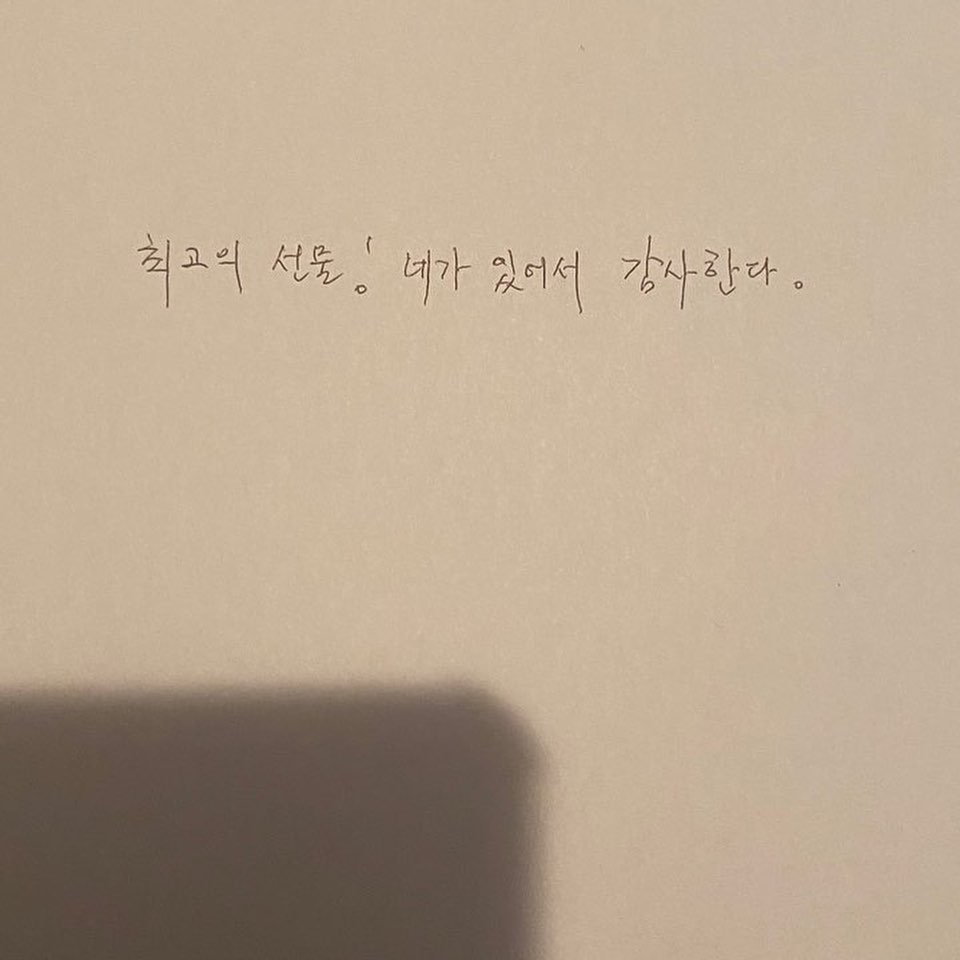 최고의 선물! 네가 있어서 감사한다.